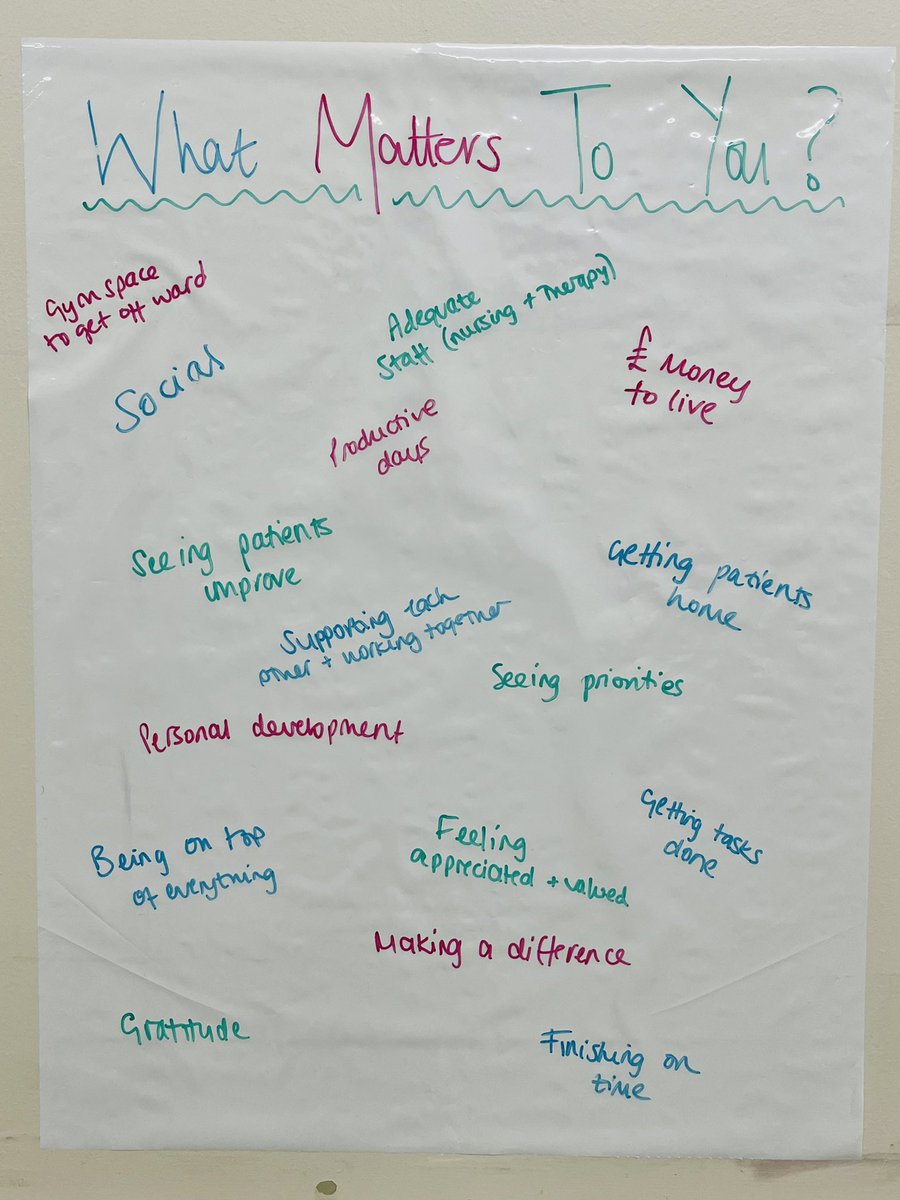 What Matters To You?
Gym space
to get off ward
Adequate
Staff (nursing + Therapy)
Social
£ Money
to live
Productive
days
Seeing patients
improve
Getting patients
home
Supporting each
other + working together
Seeing priorities
Personal development
Being on top
of everything
Feeling
appreciated + valued
Getting tasks
done
Making a difference
Gratitude
Finishing on
time